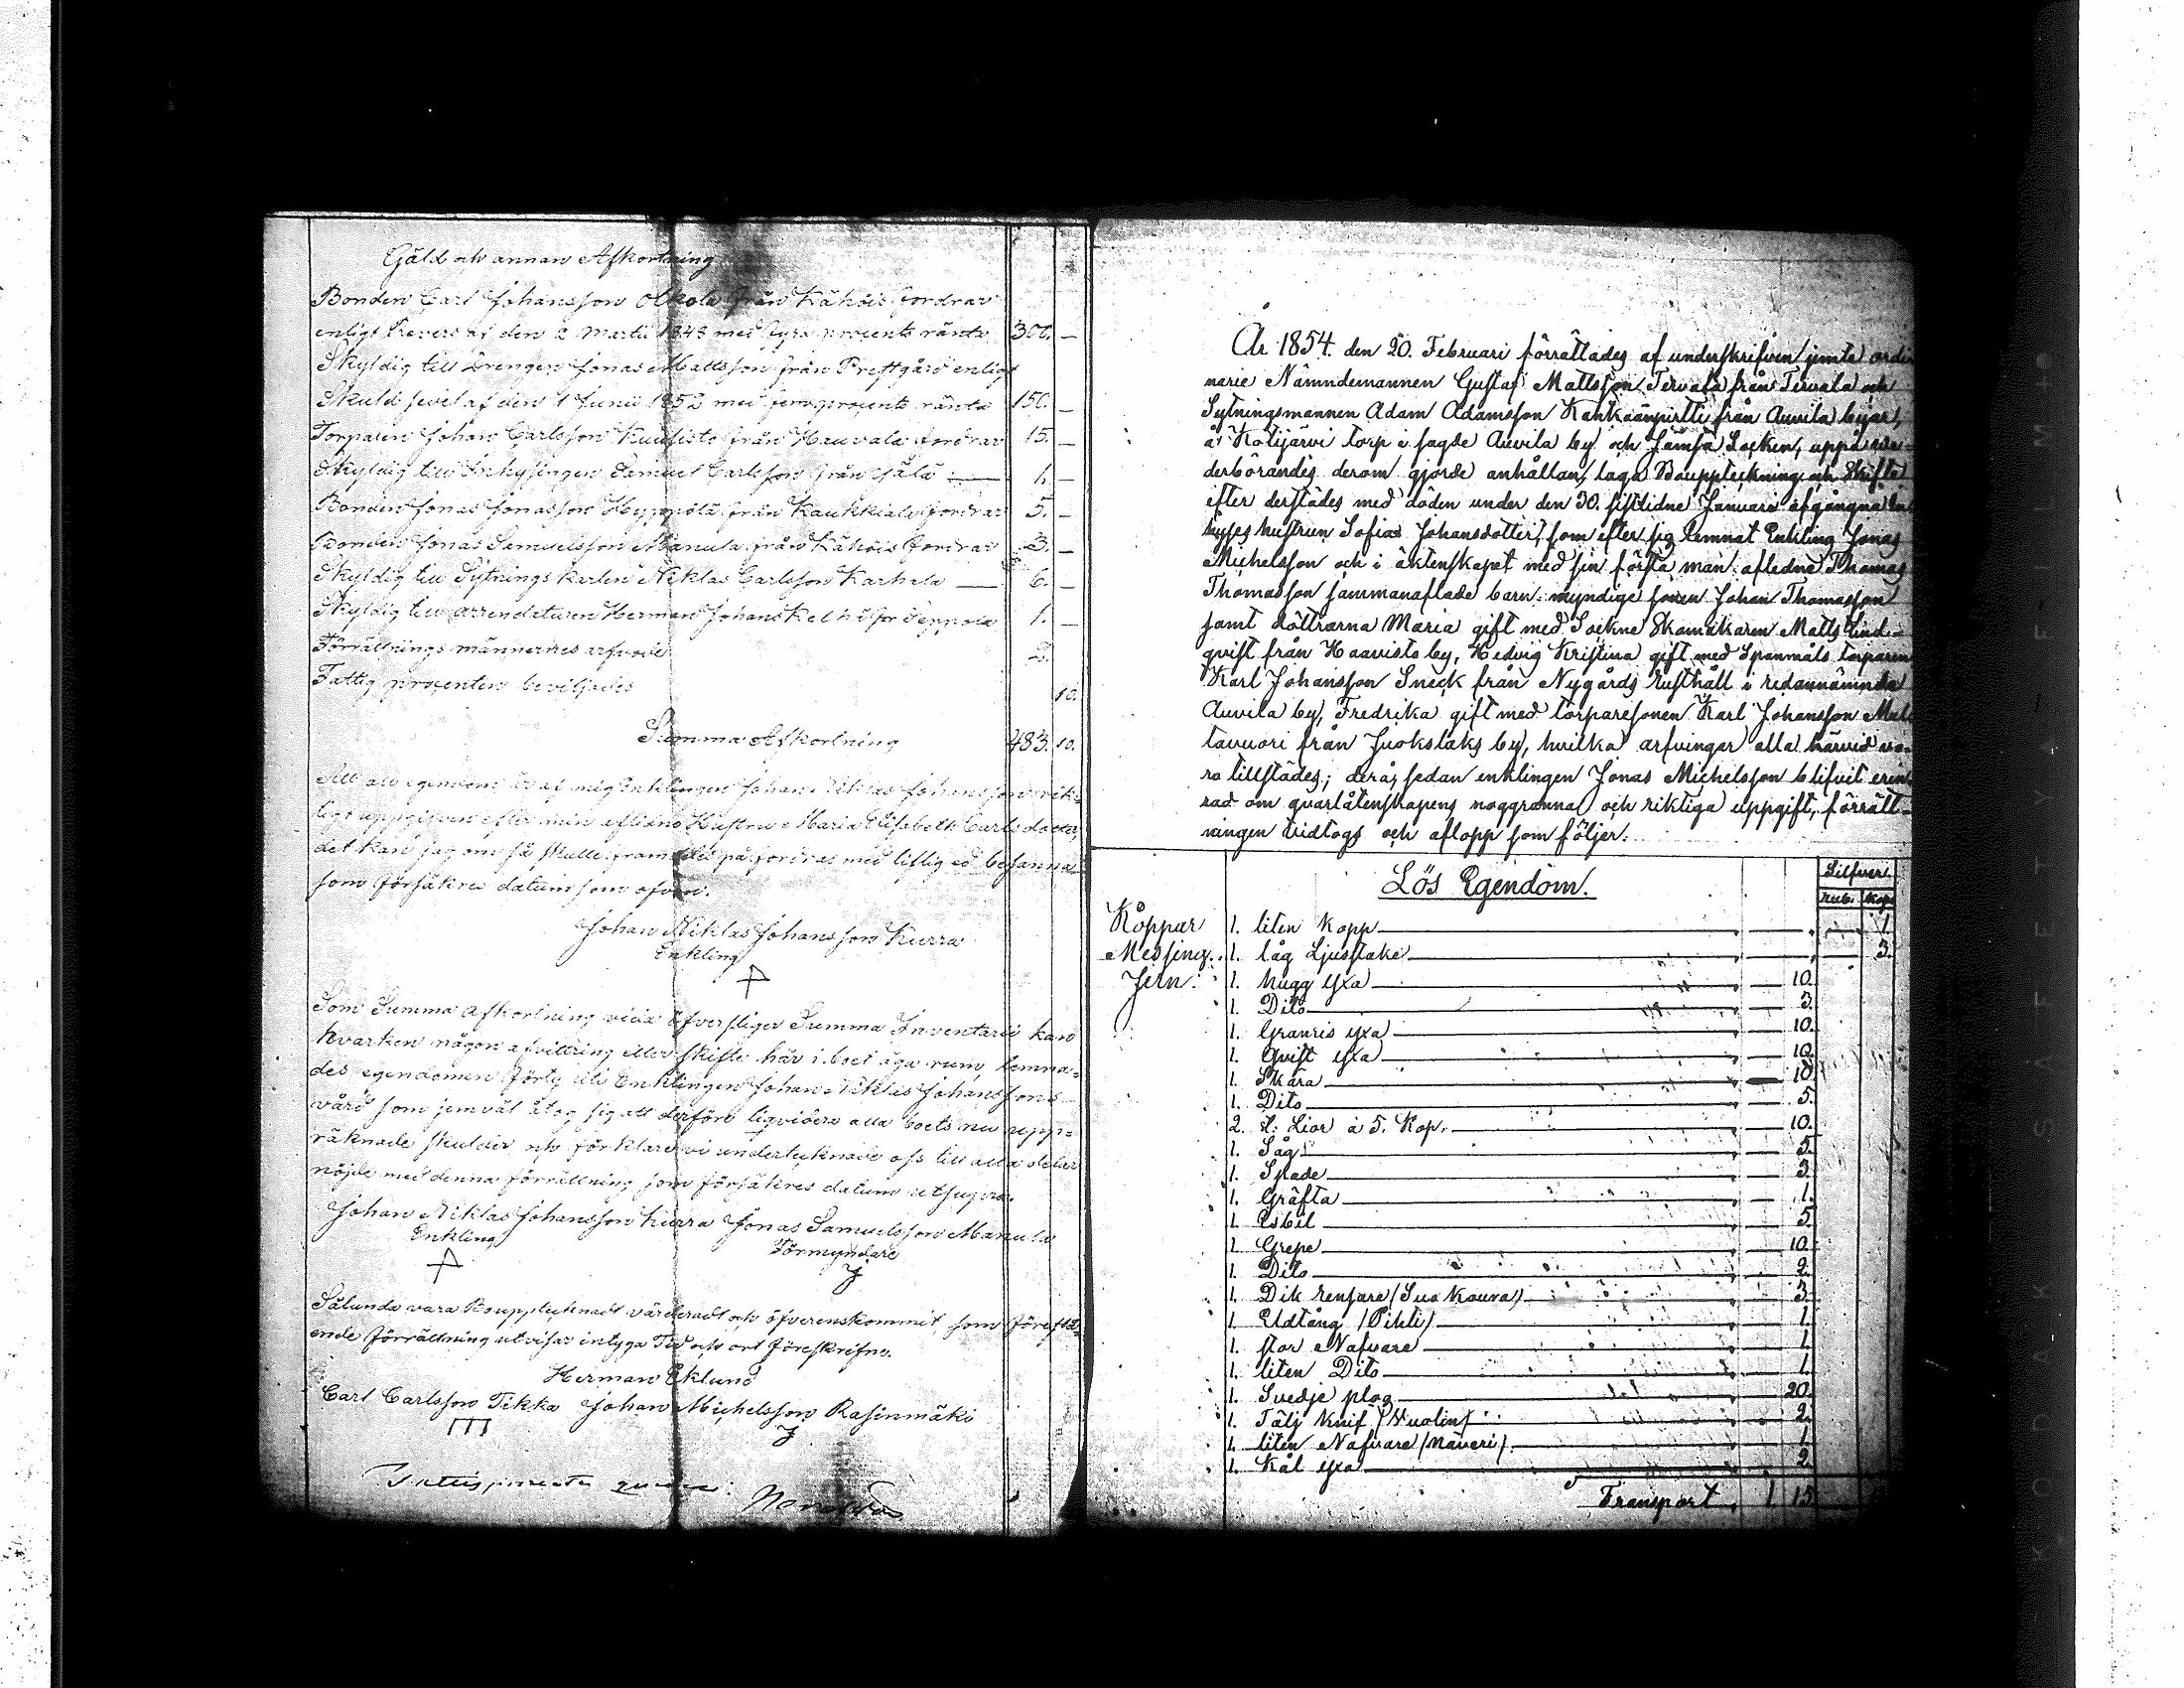 Gäld och annan Afkortning
Bonden Carl Johansson Olkola från Kähöis fordrar
enligt Revers af den 2 Martii 1848 med fyra procents ränta 300. —
Skyldig till Drengen Jonas Mattsson från Prestgård enligt
Skuldsevel af den 1 Junii 1852 med fem procents ränta 150. —
Torparen Johan Carlsson Kuusisto från Hauvala fordrar 15. —
Skyldig till Inhysingen Samuel Carlsson från 1. —
Bonden Jonas Jonasson Hyppölä från Kaukkiala fordrar 5. —
Bonden Jonas Samuelsson Manula från Kähöis fordrar 3. —
Skyldig till Sytnings karlen Niklas Carlsson Karhula — 6. —
Skyldig till arrendatoren Herman Johans Seppola 1. —
Förrättnings männernes arfvode 2.
Fattig procenten beviljades 10.
Summa Afkortning 483. 10.
Att all egendom är af mig Enklingen Johan Niklas Johansson rik-
tigt uppgifven efter min aflidne Hustru Maria Elisabeth Carlsdotter,
det kan jag om så skulle framdeles på fordras med liflig ed besanna
som försäkras datum som ofvan.
Johan Niklas Johansson Kurra
Enkling
Som Summa afkortning vida öfverstiger Summa Inventarii kan
hvarken någon afvittring eller skifte här i boet äga rum, lemna=
des egendomen förty till Enklingen Johan Niklas Johanssons
vård som jemväl åtog sig att derföre liqvidera alla boets nu upp=
räknade skulder och förklare vi undertecknade oss till alla delar
nöjde med denna förrättning som försäkres datum ut supra.
Johan Niklas Johansson Kurra Jonas Samuelsson Manula
Enkling Förmyndare
Sålunda vara Bouppteknadt värderadt och öfverenskommit, som förestå-
ende förrättning utvisar intyga Tid och ort föreskrifne.
Herman Eklund
Carl Carlsson Tikka Johan Michelsson Rasinmäki
År 1854. den 20. Februari förrättades af underskrifven jemte ordi
narie Nämndemannen Gustaf Mattsson Tervala från Tervala och
Sytningsmannen Adam Adamsson Kankaanpirtti från Auvila byar,
å Kotijärvi torp i sagde Auvila by och Jämsä Socken, uppå ve-
derbörandes derom gjorde anhållan, laga Bouppteckning och Skifte
efter derstädes med döden under den 30. sistlidne Januari afgångna In
hyses hustrun Sofia Johansdotter, som efter sig lemnat Enkling Jonas
Michelsson och i äktenskapet med sin första man afledne Thomas
Thomasson sammanaflade barn: myndige sonen Johan Thomasson
samt döttrarna Maria gift med Sockne Skomakaren Matts Lind-
qvist från Haavisto by, Hedvig Kristina gift med Spanmåls torparen
Karl Johansson Sneck från Nygårds rusthåll i redannämnda
Auvila by, Fredrika gift med torparesonen Karl Johansson Mus
tavuori från Juokslaks by, hvilka arfvingar alla härvid vo-
ro tillstädes; derå, sedan enklingen Jonas Michelsson blifvit erin
rad om qvarlåtenskapens noggranna och riktiga uppgift, förrätt-
ningen vidtogs och aflopp som följer:
Lös Egendom. Silfver
rub. Kop.
Koppar 1. liten Kopp 1.
Messing. 1. låg Ljusstake 3.
Jern: 1. hugg yxa 10.
1. Dito 3.
1. Granris yxa 10.
1. Qvist yxa 10.
1. Skära 10
1. Dito 5.
2. st: Lior à 5. Kop. 10.
1. Såg 5.
1. Spade 3.
1. Gräfta 1.
1. Isbil 5.
1. Grepe 10.
1. Dito 2.
1. Dik rensare (Suo Koura) 3.
1. Eldtång (Pihti) 1.
1. stor Nafvare 1.
1. liten Dito 1.
1. Svedje plog 20.
1. Tälj knif (Vuolin) 2.
1. liten Nafvare (Näveri) 1.
1. Kål yxa 2.
Transport 1 15
KODAK SAFETY FILM